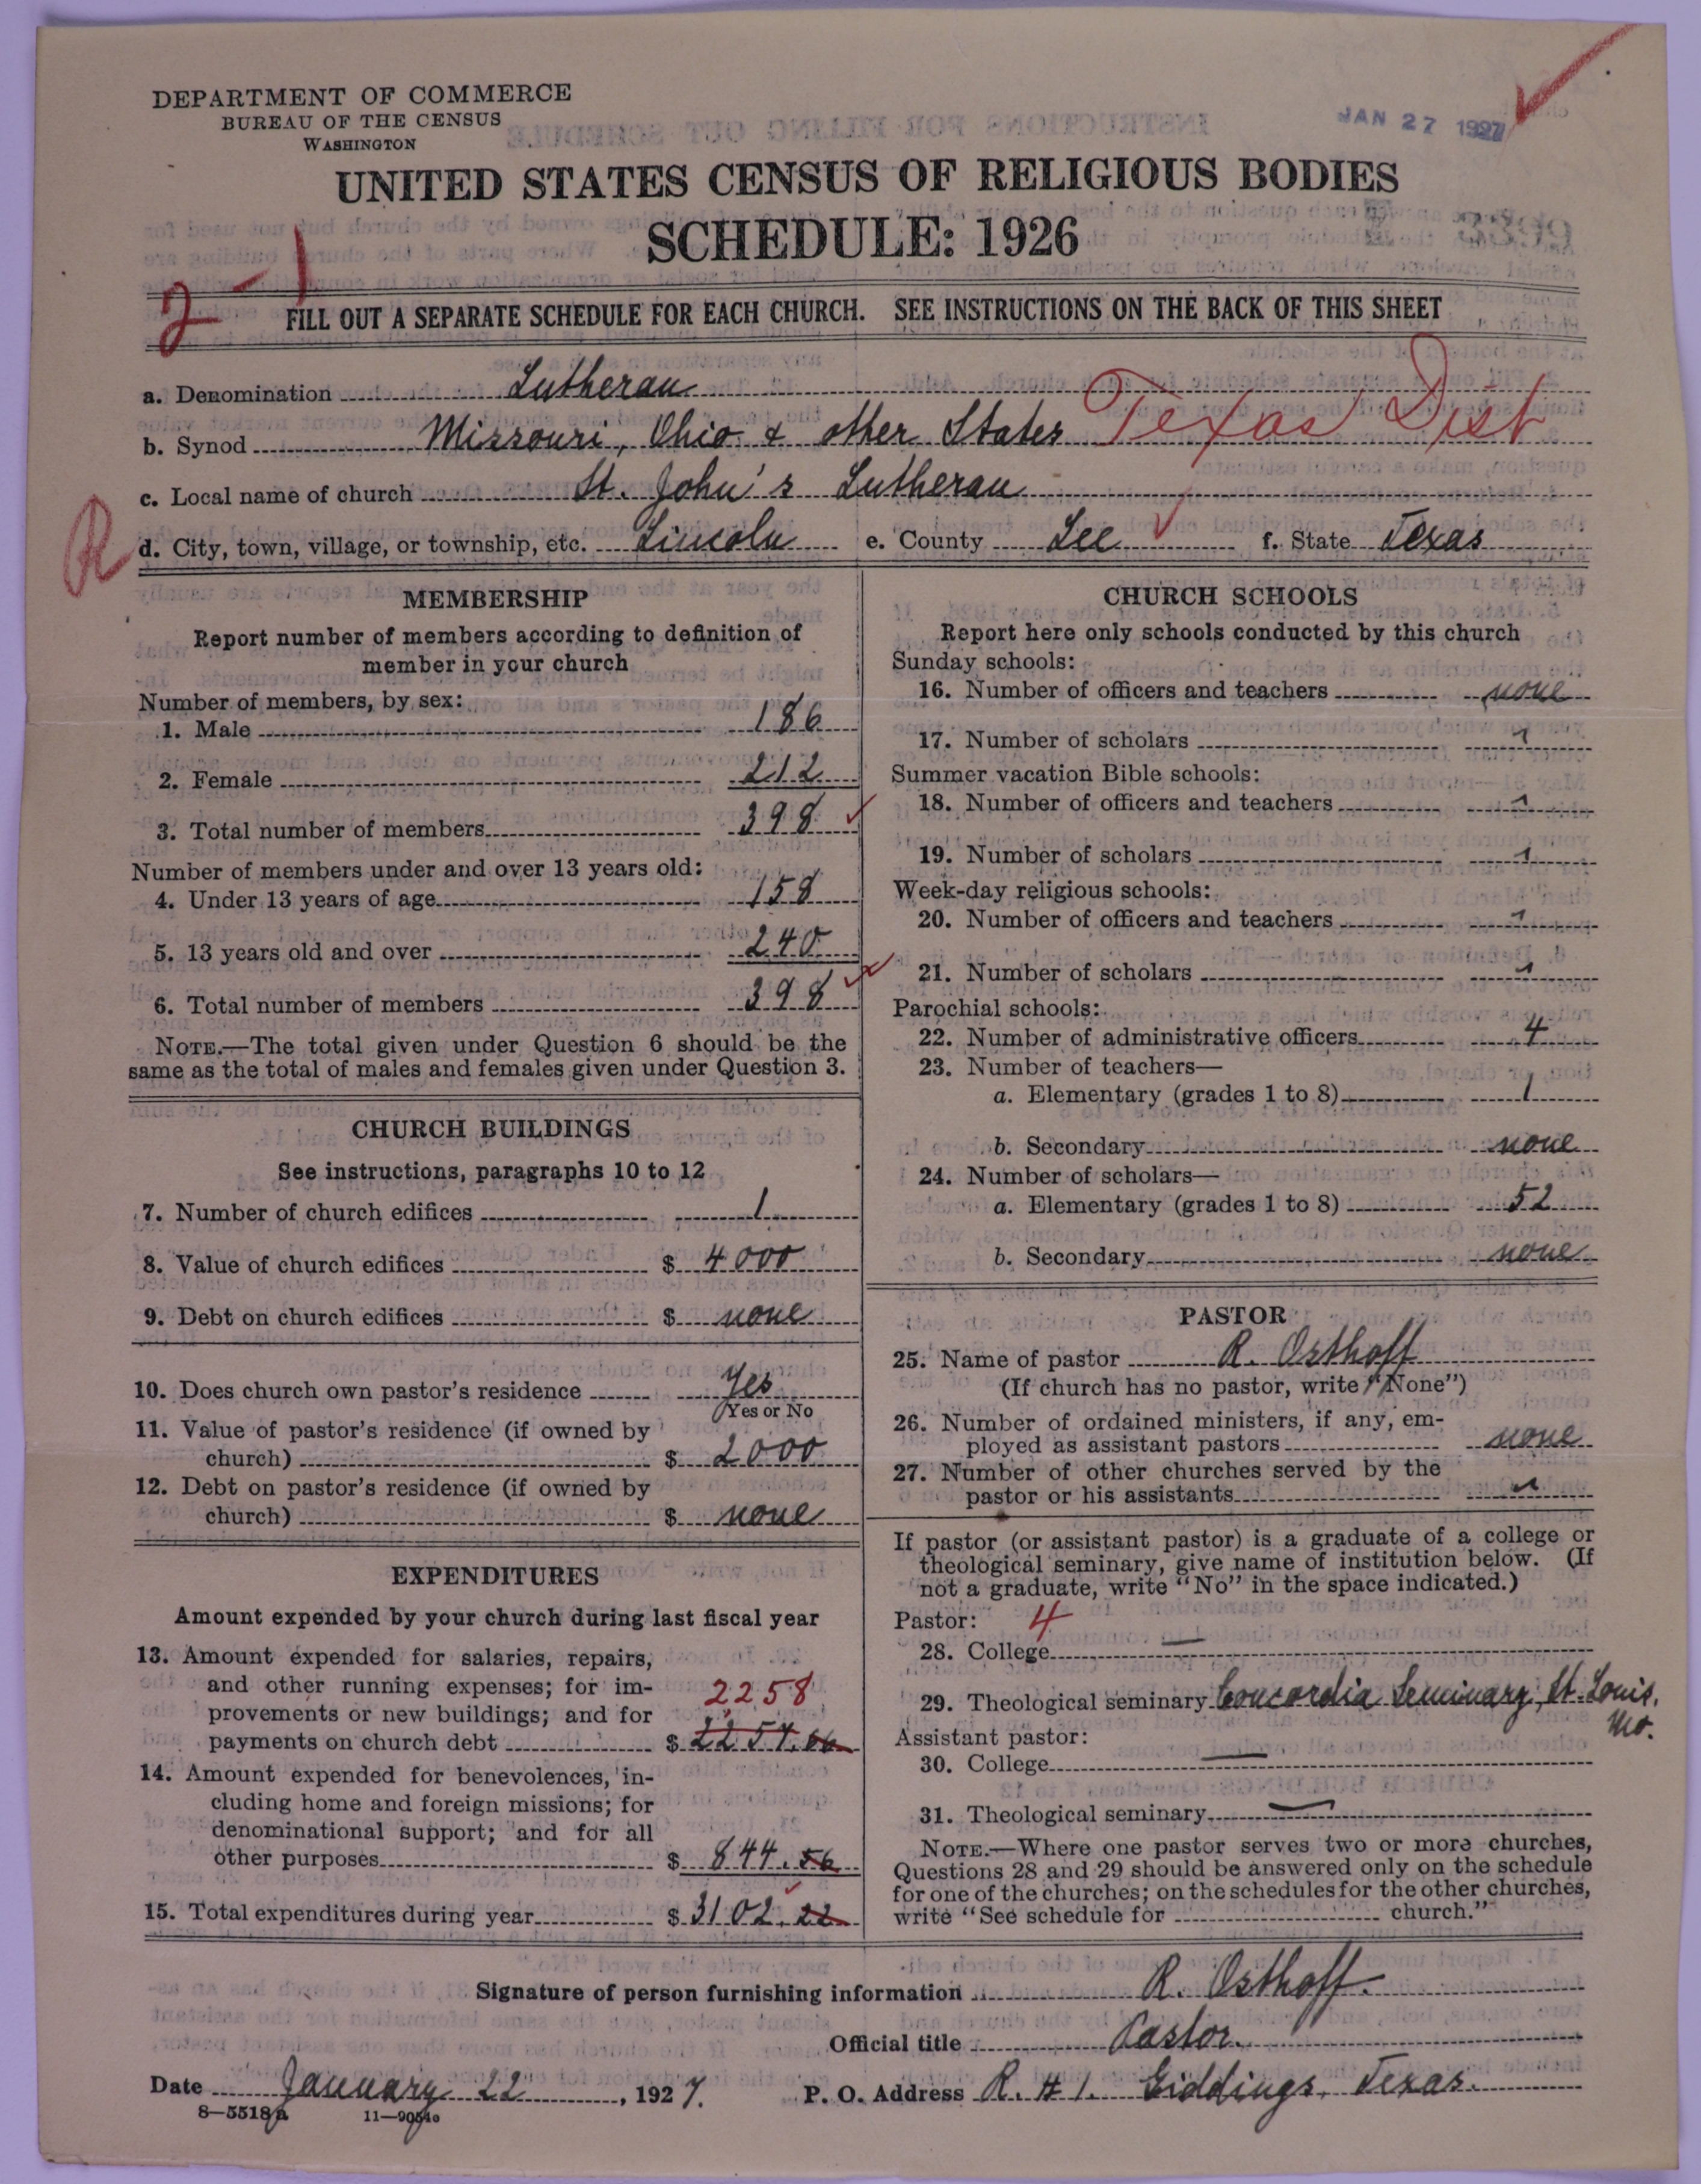 DEPARTMENT OF COMMERCE
BUREAU OF THE CENSUS
WASHINGTON
JAN 27 1927
UNITED STATES CENSUS OF RELIGIOUS BODIES
SCHEDULE: 1926
2-1
FILL OUT A SEPARATE SCHEDULE FOR EACH CHURCH. SEE INSTRUCTIONS ON THE BACK OF THIS SHEET
a. Denomination Lutheran
b. Synod Missouri, Ohio & other States Texas Dist
c. Local name of church St. John's Lutheran
R
d. City, town, village, or township, etc. Lincoln e. County Lee f. State Texas
MEMBERSHIP
Report number of members according to definition of
member in your church
Number of members, by sex:
1. Male 186
2. Female 212
3. Total number of members 398
Number of members under and over 13 years old:
4. Under 13 years of age 158
5. 13 years old and over 240
6. Total number of members 398
NOTE.—The total given under Question 6 should be the
same as the total of males and females given under Question 3.
CHURCH BUILDINGS
See instructions, paragraphs 10 to 12
7. Number of church edifices 1
8. Value of church edifices $ 4000
9. Debt on church edifices $ none
10. Does church own pastor's residence Yes
Yes or No
11. Value of pastor's residence (if owned by
church) $ 2000
12. Debt on pastor's residence (if owned by
church) $ none
EXPENDITURES
Amount expended by your church during last fiscal year
13. Amount expended for salaries, repairs,
and other running expenses; for im-
2258
provements or new buildings; and for
payments on church debt $ 2257.66
14. Amount expended for benevolences, in-
cluding home and foreign missions; for
denominational support; and for all
other purposes $ 844.56
15. Total expenditures during year $ 3102.22
CHURCH SCHOOLS
Report here only schools conducted by this church
Sunday schools:
16. Number of officers and teachers none
17. Number of scholars "
Summer vacation Bible schools:
18. Number of officers and teachers "
19. Number of scholars "
Week-day religious schools:
20. Number of officers and teachers "
21. Number of scholars "
Parochial schools:
22. Number of administrative officers 4
23. Number of teachers—
a. Elementary (grades 1 to 8) 1
b. Secondary none
24. Number of scholars—
a. Elementary (grades 1 to 8) 52
b. Secondary none
PASTOR
25. Name of pastor R. Osthoff
(If church has no pastor, write "None")
26. Number of ordained ministers, if any, em-
ployed as assistant pastors none
27. Number of other churches served by the
pastor or his assistants "
If pastor (or assistant pastor) is a graduate of a college or
theological seminary, give name of institution below. (If
not a graduate, write "No" in the space indicated.)
Pastor: 4
28. College —
29. Theological seminary Concordia Seminary, St. Louis,
Mo.
Assistant pastor:
30. College —
31. Theological seminary —
NOTE.—Where one pastor serves two or more churches,
Questions 28 and 29 should be answered only on the schedule
for one of the churches; on the schedules for the other churches,
write "See schedule for church."
Signature of person furnishing information R. Osthoff.
Official title Pastor.
Date January 22, 1927. P. O. Address R. # 1. Giddings, Texas.
8—5518a 11—9054a